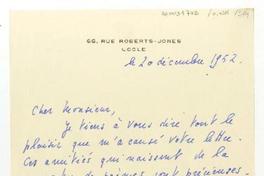 66, RUE ROBERTS-JONES
UCCLE
le 20 décembre 1952.
Cher Monsieur,
Je tiens à vous dire tout le
plaisir que m'a causé votre lettre.
Ces amitiés qui naissent de la
de poèmes sont précieuses.